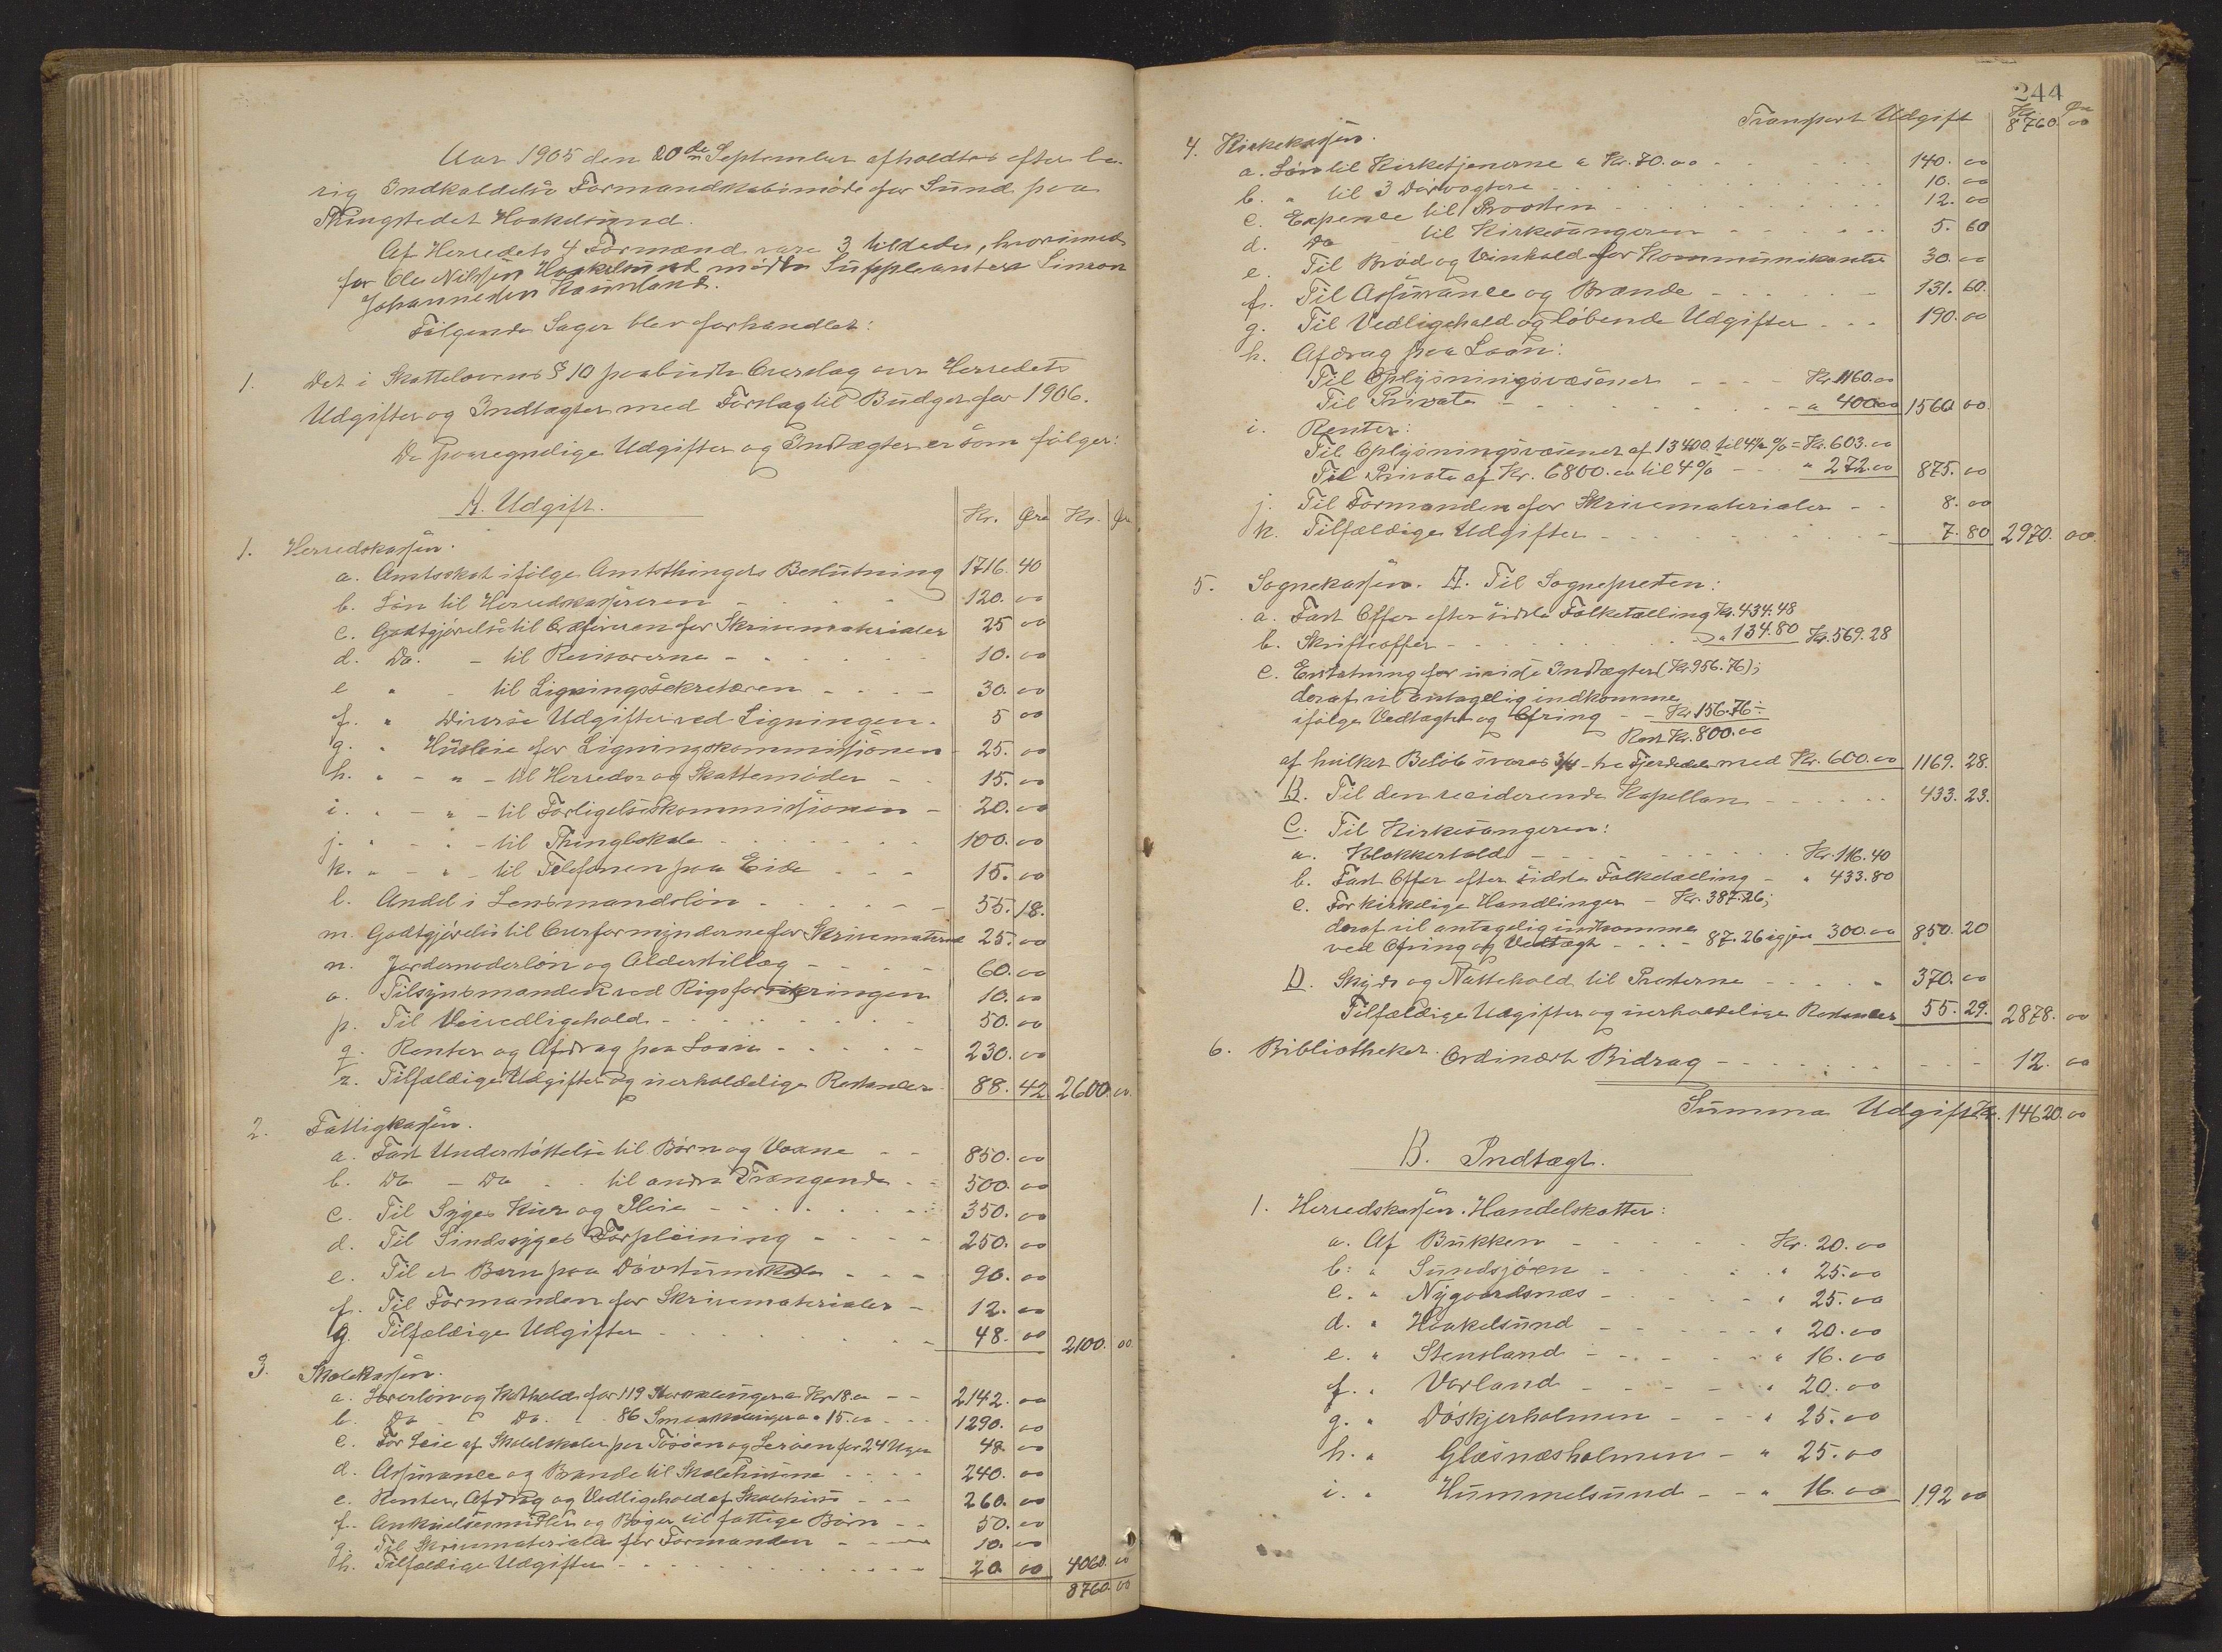 Aar 1905 den 20de September afholdtes efter lo-
rig Indkaldelse Formandskabsmøde for Sund paa
Thingstedet Hookelsund.
Af Herredets 4 Formænd vare 3 tilstede, hvorimod
for Ole Nilssen Hookelsund mødte Suppleanten Simon
Johannesen Kausland.
Følgende Sager blev forhandlet:
1. Det i Skattelovens § 10 paabudte Overslag over Herredets
Udgifter og Indtægter med Forslag til Budget for 1906.
De paaregnelige Udgifter og Indtægter er som følger:
A. Udgift. Kr. Øre Kr. Øre
1. Herredskassen.
a. Amtsskat ifølge Amtsthingets Beslutning 1716. 40
b. Løn til Herredskassereren 120. 00
c. Godtgjørelse til Ordføreren for Skrivematerialer 25 00
d. Do. - til Revisorerne 10. 00
e " - til Ligningssekretæren 30. 00
f. " Diverse Udgifter ved Ligningen. 5 00
g. " Husleie for Ligningskommissionen 25. 00
h. " - " - til Herreds og Skattemøder 15. 00
i. " - " - til Forligelseskommissionen 20. 00
j. " - " - til Thinglokale 100. 00
k. " - " - til Telefonen paa Eide 15. 00
l. Andel i Lensmandsløn 55. 18.
m. Godtgjørelse til Overformynderne for Skrivemateriale 25. 00
n. Jordemoderløn og Alderstillæg 60. 00
o. Tilsynsmanden ved Rigsforsikringen 10. 00
p. Til Veivedligehold 50. 00
q. Renter og Afdrag paa Laan 230. 00
r. Tilfældige Udgifter og uerholdelige Restancer 88. 42 2600. 00
2. Fattigkassen.
a. Fast Understøttelse til Børn og Voxne 850. 00
b. Do - Do - til andre Trængende 500. 00
c. Til Syges Kur og Pleie 350. 00
d. Til Sindssyges Forpleining 250. 00
e. Til et Barn paa Døvstumskole 90. 00
f. Til Formanden for Skrivematerialer 12. 00
g. Tilfældige Udgifter 48. 00 2100. 00.
3. Skolekassen.
a. Lærerløn og Kosthold for 119 Storskoleuger a Kr 18.00 2142. 00
b. Do - Do. - 86 Smaaskoleuger a " 15.00 1290. 00
c. For Leie af Skolelokaler paa Tøsøen og Lerøen for 24 Uger 48. 00
d. Assurance og Brænde til Skolehusene 240. 00
e. Renter, Afdrag og Vedligehold af Skolehuse 260. 00
f. Anskuelsesmidler og Bøger til fattige Børn 50. 00
g. Til Skrivematerialer for Formanden 10. 00
h. Tilfældige Udgifter 20 00 4060. 00
8760. 00
244
Transport Udgift Kr. 8760. Øre 00
4. Kirkekassen.
a. Løn til Kirketjenerne a Kr. 70.00 140. 00
b. " til 3 Dørvogtere 10. 00
c. Expence til Provsten 12. 00
d. Do til Kirkesangeren 5. 60
e. Til Brød og Vinhold for Kommunikanter 30. 00
f. Til Assurance og Brænde 131. 60.
g. Til Vedligehold og løbende Udgifter 190. 00
h. Afdrag paa Laan:
Til Oplysningsvæsenet Kr. 1160.00
Til Private " 400.00 1560 00.
i. Renter:
Til Oplysningsvæsenet af 13400 til 4½ % = Kr. 603.00
Til Private af Kr. 6800.00 til 4% " 272.00 875. 00
j. Til Formanden for Skrivematerialer 8. 00
k. Tilfældige Udgifter 7. 80 2970. 00.
5. Sognekassen. A. Til Sognepresten:
a. Fast Offer efter sidste Folketælling Kr. 434.48
b. Skriftoffer " 134.80 Kr. 569.28
c. Erstatning for uvisse Indtægter (Kr. 956.76);
deraf vil antagelig indkomme
ifølge Vedtægter og Ofring Kr. 156.76 ÷
Rest Kr. 800.00
af hvilket Beløb svares 3/4 - tre Fjerdedele med Kr. 600.00 1169. 28.
B. Til den residerende Kapellan 433. 23.
C. Til Kirkesangeren:
a. Klokkertold Kr. 116.40
b. Fast Offer efter sidste Folketælling " 433.80
c. For kirkelige Handlinger - Kr. 387.26;
deraf vil antagelig indkomme
ved Ofring og Vedtægt 87.26 igjen 300.00 850. 20
D. Skyds og Nattehold til Presterne 370. 00
Tilfældige Udgifter og uerholdelige Restancer 55. 29. 2878. 00
6. Bibliotheket. Ordinært Bidrag 12. 00
Summa Udgift Kr. 14620. 00
B. Indtægt.
1. Herredskassen. Handelskatter:
a. Af Bukken Kr. 20.00
b. " Sundsjøen " 25.00
c. " Nygaardsnæs " 25.00
d. " Hookelsund " 20.00
e. " Stensland " 16.00
f. " Vorland " 20.00
g. " Døskjerholmen " 25.00
h. " Glæsnæsholmen " 25.00
i. " Hummelsund " 16.00 192 00